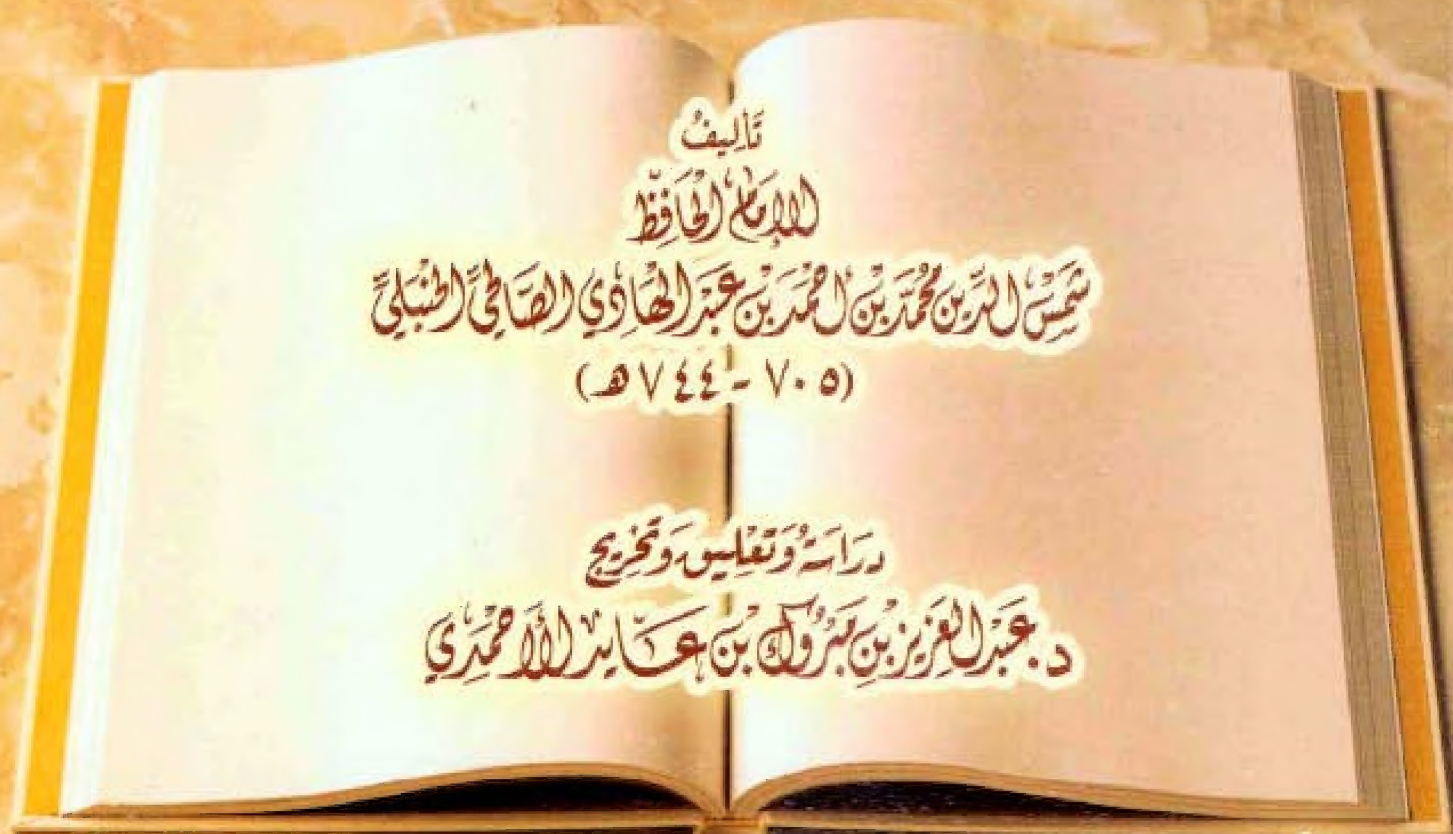 تَأليفُ
الإمَام الحَافِظ
شَمْسُ الدِّين مُحَمَّد بْن أحْمَد بْن عَبْد الهَادي الصَّالحيّ الحَنْبَليّ
(٧٠٥ - ٧٤٤ هـ)
دِرَاسَةُ وَتَعْلِيق وَتَخْرِيج
د. عَبْد العَزيز بْنِ مَبْرُوك بْن عَايد الأحْمَدِي